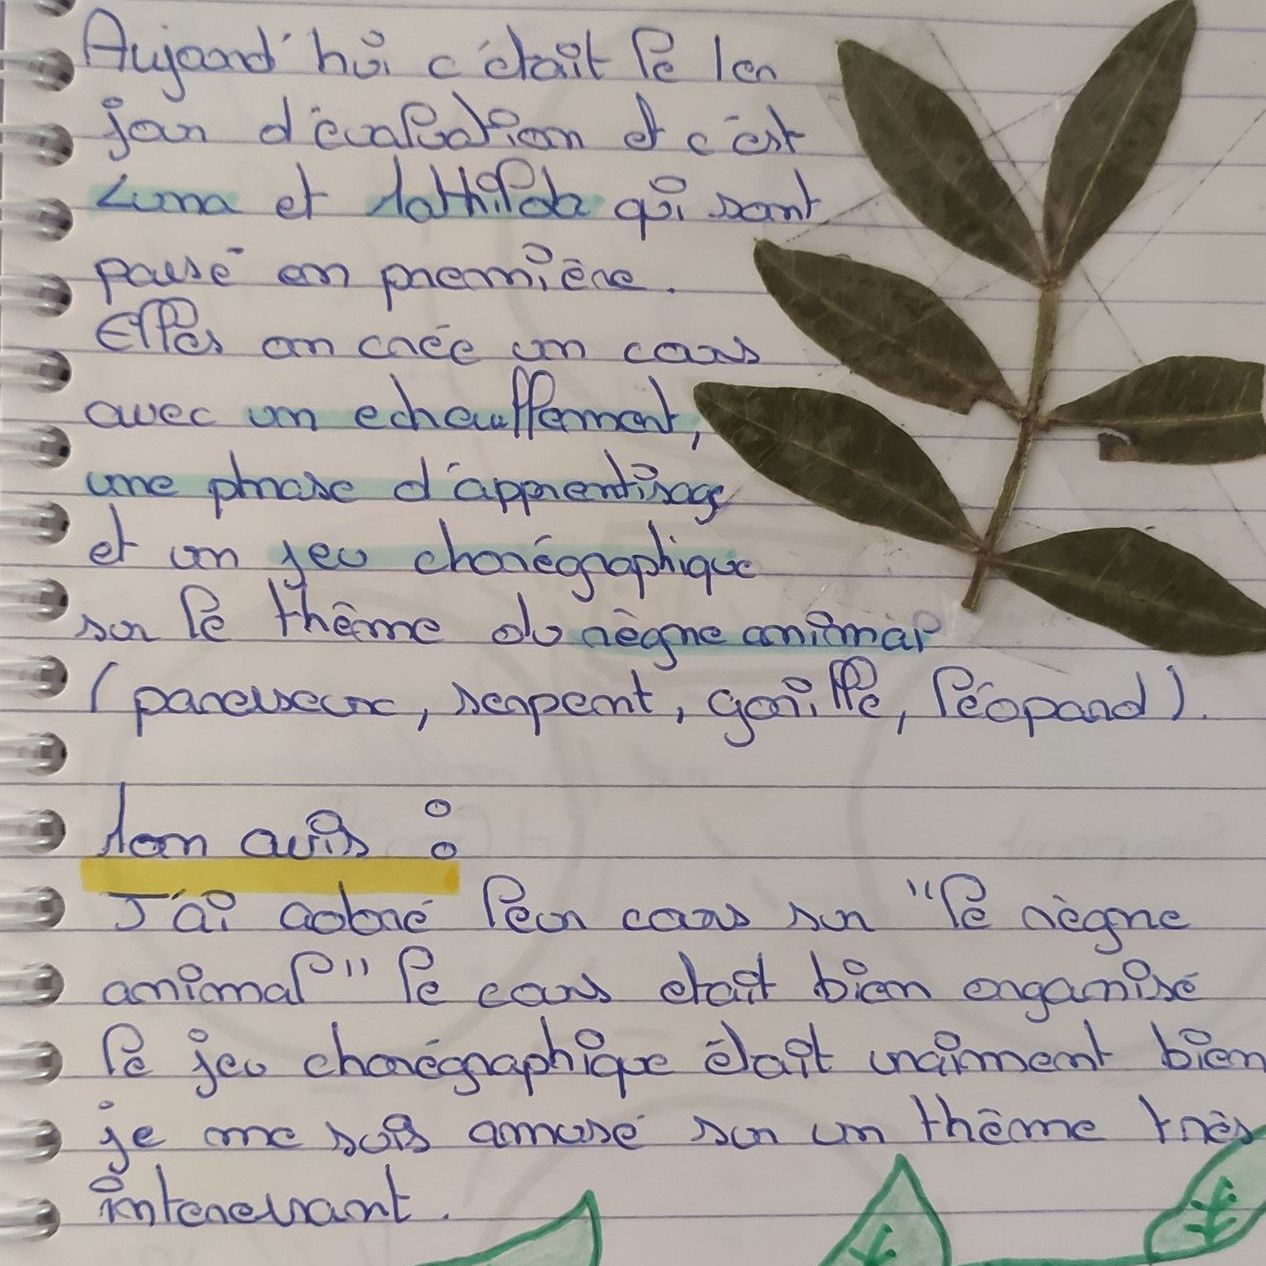 Aujourd'hui c'était le 1er
jour d'évaluation et c'est
Luna et Mathilda qui sont
passé en première.
Elles on crée un cours
avec un echauffement,
une phrase d'apprentisage
et un jeu chorégraphique
sur le thème du règne animal
(paresseux, serpent, gorille, léopard).
Mon avis :
J'ai adoré leur cours sur "le règne
animal" le cours etait bien organisé
le jeu chorégraphique était vraiment bien
je me suis amusé sur un thème très
interessant.